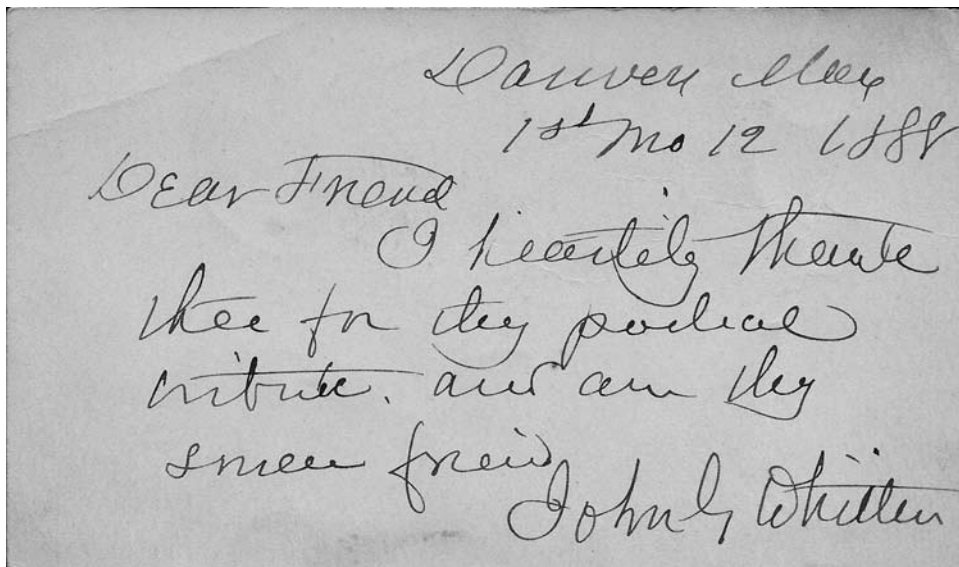 Danvers Mass
1st Mo 12 1888
Dear Friend
I heartily thank
thee for thy poetical
tribute. and am thy
sincere friend
John G Whittier